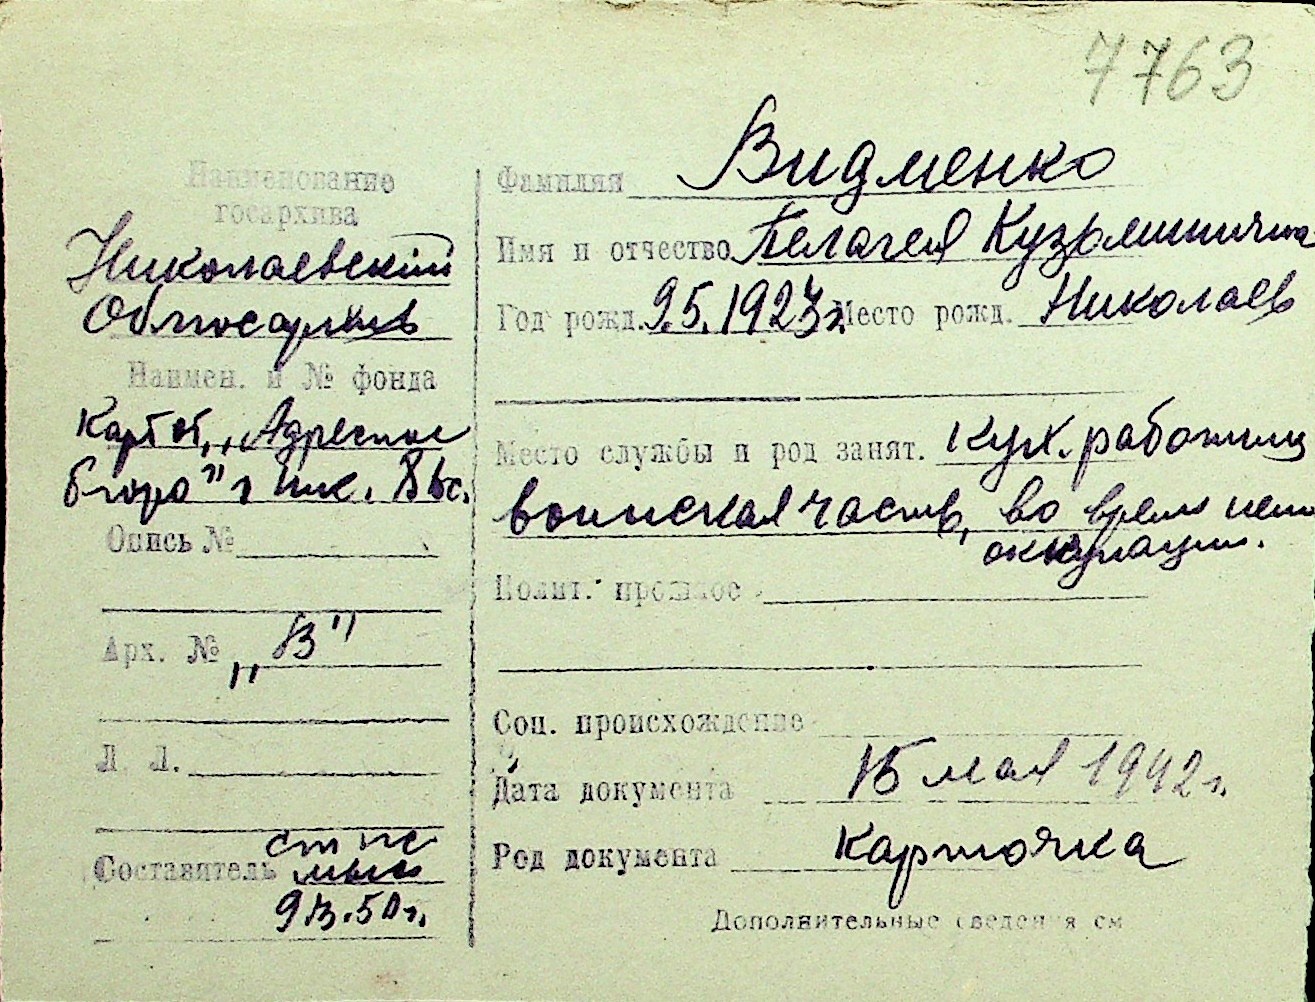 7763
Наименование
госархива
Николаевский
Облгосархив
Наимен. и № фонда
Картот. „Адресное
бюро" г. Ник.
Опись №
Арх. № „В"
Л. Л.
Составитель
50 г.
Фамилия Видменко
Имя и отчество Пелагея Кузьминична
Год рожд. 9.5.1923 г. Место рожд. Николаев
Место службы и род занят. Кух. работниц
воинская часть, во время нем
оккупации.
Полит. прошлое
Соц. происхождение
Дата документа 15 мая 1942 г.
Род документа карточка
Дополнительные сведения см